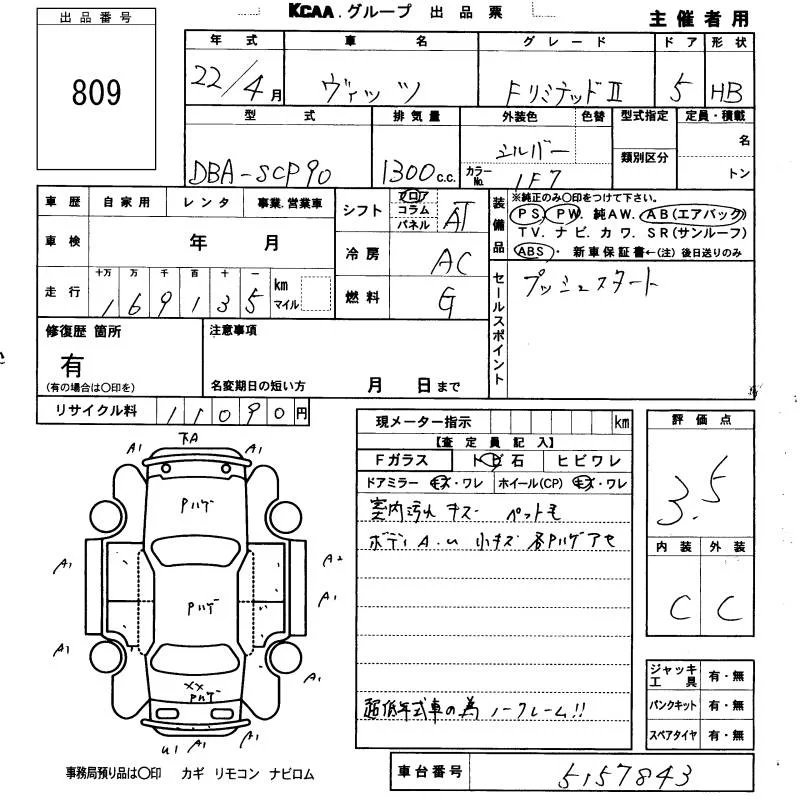 KCAA.グループ 出品票
主催者用
出品番号
809
年式 車名 グレード ドア 形状
22/4月 ヴィッツ FリミテッドⅡ 5 HB
型式 排気量 外装色 色替 型式指定 定員・積載
DBA-SCP90 1300c.c. シルバー 名
類別区分
カラーNo. 1F7 トン
車歴 自家用 レンタ 事業.営業車
車検 年 月
走行 十万 万 千 百 十 一
169135 km マイル
シフト フロア コラム パネル AT
冷房 AC
燃料 G
装備品
※純正のみ〇印をつけて下さい。
PS. PW. 純AW. AB(エアバック)
TV. ナビ. カワ. SR(サンルーフ)
ABS・ 新車保証書←(注) 後日送りのみ
セールスポイント
プッシュスタート
修復歴 箇所
有
(有の場合は〇印を)
注意事項
名変期日の短い方 月 日まで
リサイクル料 11090円
現メーター指示 km
【査定員記入】
Fガラス トビ石 ヒビワレ
ドアミラー キズ・ワレ ホイール(CP) キズ・ワレ
室内汚れ キズ ペット毛
ボディA.u 小キズ 各Pハゲアセ
超低年式車の為 ノークレーム!!
評価点
3.5
内装 外装
C C
ジャッキ 工具 有・無
パンクキット 有・無
スペアタイヤ 有・無
A1 下A A1
Pハゲ
A1 A2
A1
Pハゲ
A1 A1
XX
Pハゲ
U1 A1 A1
事務局預り品は〇印 カギ リモコン ナビロム
車台番号 5157843